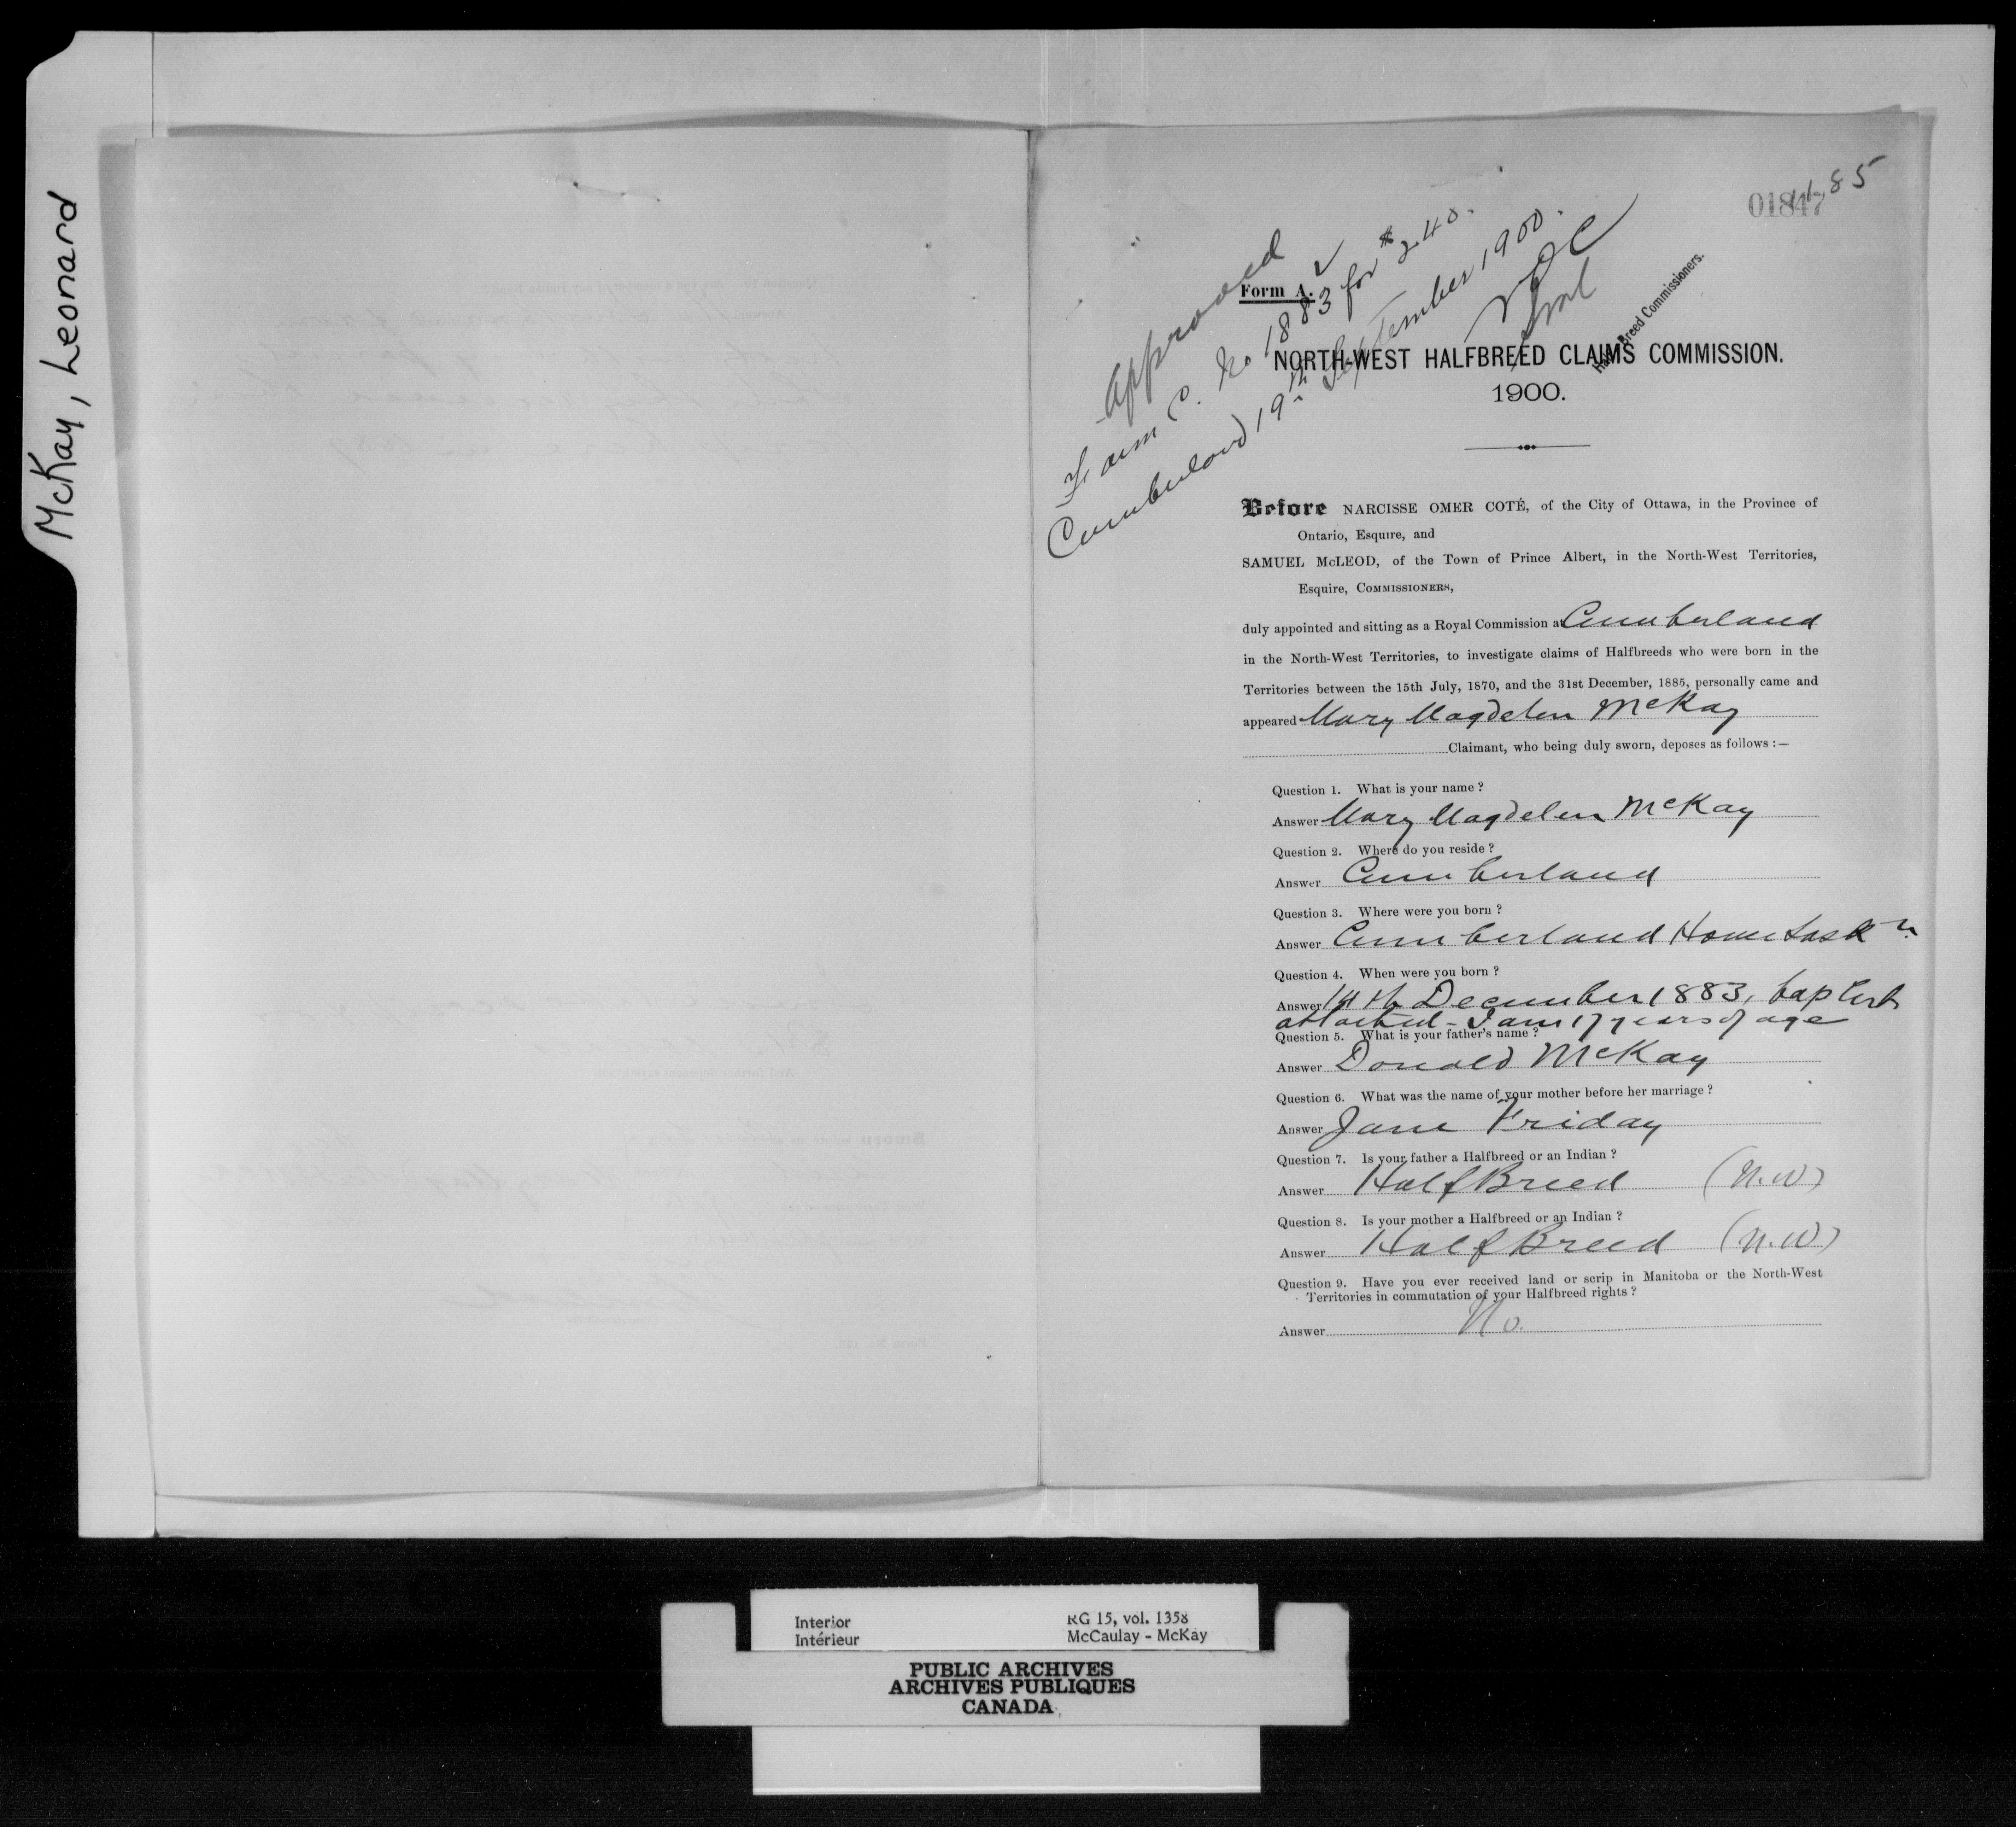 McKay, Leonard
01847
85
Approved
Form C. No 1883 for $240.
Cumberland 19th September 1900.
NOC
Half-Breed Commissioners.
Form A.
NORTH-WEST HALFBREED CLAIMS COMMISSION.
1900.
Before NARCISSE OMER COTÉ, of the City of Ottawa, in the Province of
Ontario, Esquire, and
SAMUEL McLEOD, of the Town of Prince Albert, in the North-West Territories,
Esquire, COMMISSIONERS,
duly appointed and sitting as a Royal Commission at Cumberland
in the North-West Territories, to investigate claims of Halfbreeds who were born in the
Territories between the 15th July, 1870, and the 31st December, 1885, personally came and
appeared Mary Magdelen McKay
Claimant, who being duly sworn, deposes as follows :—
Question 1. What is your name ?
Answer Mary Magdelen McKay
Question 2. Where do you reside ?
Answer Cumberland
Question 3. Where were you born ?
Answer Cumberland House Sask
Question 4. When were you born ?
Answer 14th December 1883, bap Cert
attached - I am 17 years of age
Question 5. What is your father's name ?
Answer Donald McKay
Question 6. What was the name of your mother before her marriage ?
Answer Jane Friday
Question 7. Is your father a Halfbreed or an Indian ?
Answer Half Breed (N.W)
Question 8. Is your mother a Halfbreed or an Indian ?
Answer Half Breed (N.W)
Question 9. Have you ever received land or scrip in Manitoba or the North-West
Territories in commutation of your Halfbreed rights ?
Answer No.
Interior RG 15, vol. 1358
Intérieur McCaulay - McKay
PUBLIC ARCHIVES
ARCHIVES PUBLIQUES
CANADA